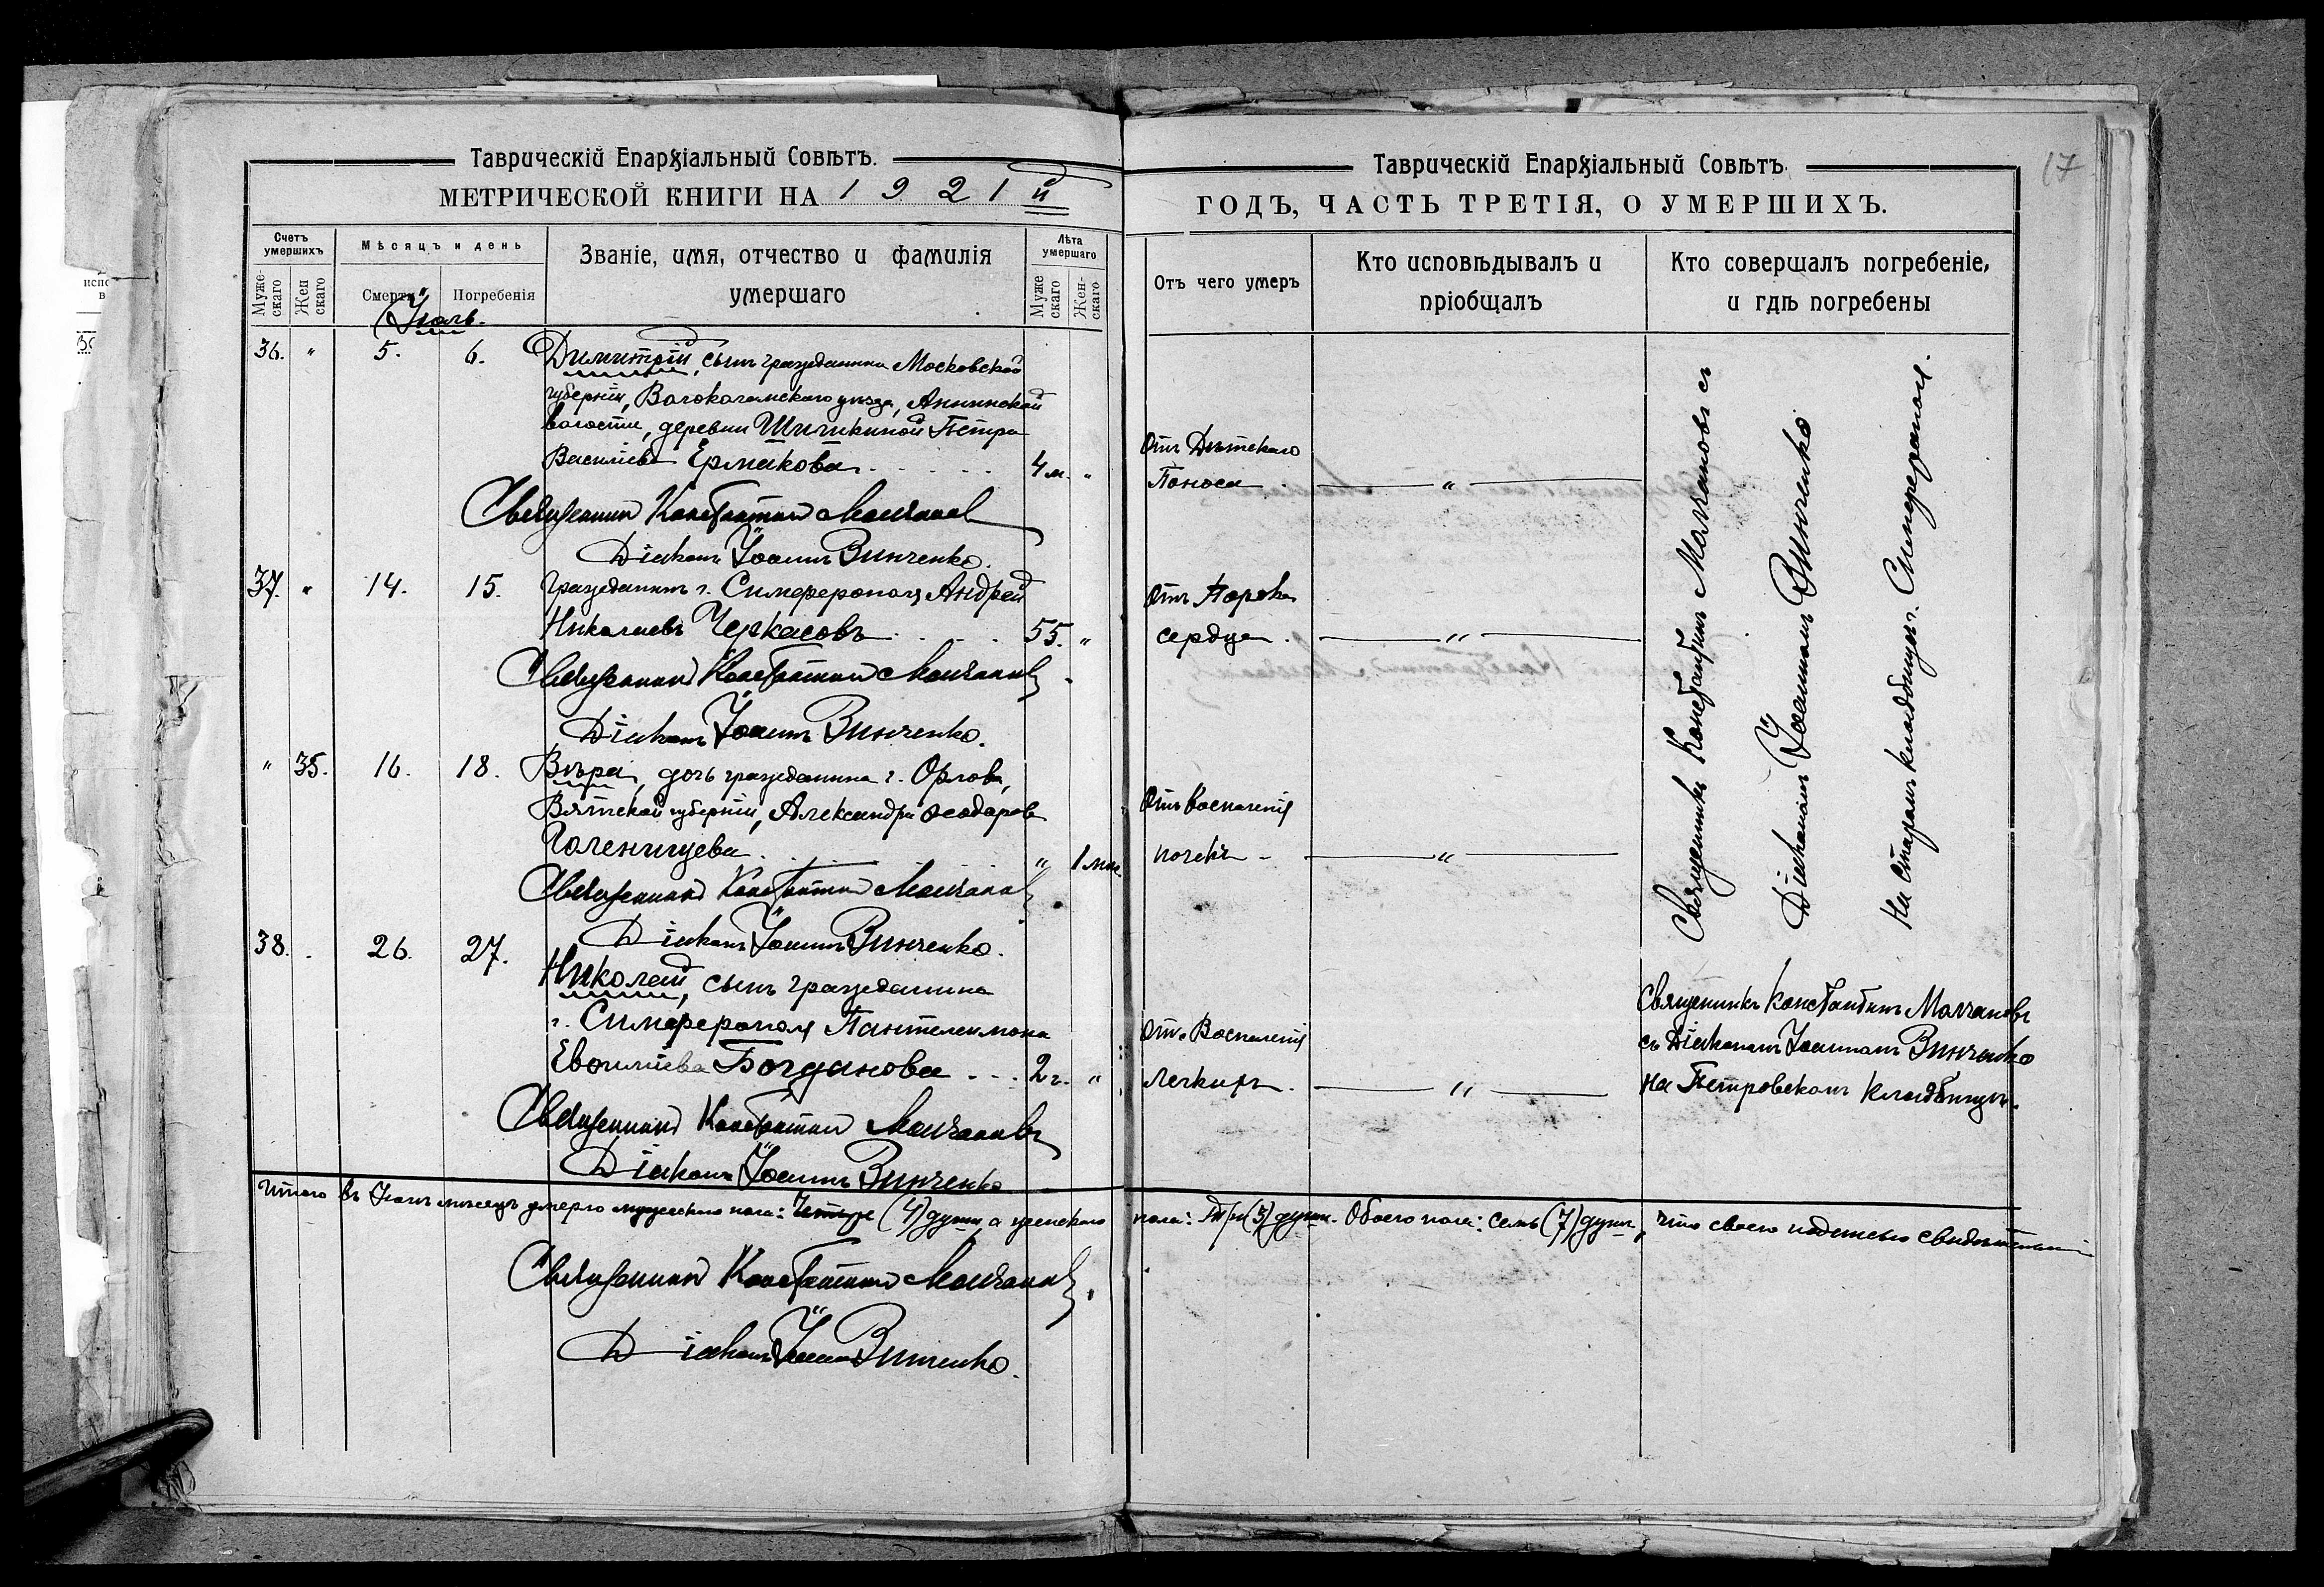 Таврическій Епархіальный Совѣтъ.
МЕТРИЧЕСКОЙ КНИГИ НА 1921 й
Счетъ умершихъ
Мужескаго
Женскаго
Мѣсяцъ и день
Смерти
Погребенія
Званіе, имя, отчество и фамилія
умершаго
Лѣта умершаго
Мужескаго
Женскаго
Іюль.
36. " 5. 6. Димитрій, сынъ гражданина Московской
губерніи, Волоколамскаго уѣзда, Аннинской
волости, деревни Шишкиной Петра
Василіева Ермакова. 4 м. "
Священникъ Константинъ Молчановъ
Діаконъ Іоаннъ Винченко.
37. " 14. 15. Гражданинъ г. Симферополя Андрей
Николаевъ Черкасовъ 55. "
Священникъ Константинъ Молчановъ.
Діаконъ Іоаннъ Винченко.
" 35. 16. 18. Вѣра, дочь гражданина г. Орлова,
Вятской губерніи, Александра Ѳеодорова
Голенищева. " 1 мѣс.
Священникъ Константинъ Молчановъ
Діаконъ Іоаннъ Винченко.
38. . 26. 27. Николай, сынъ гражданина
г. Симферополя Пантелеимона
Богданова 2 г. "
Священникъ Константинъ Молчановъ
Діаконъ Іоаннъ Винченко
Итого въ Іюлѣ мѣсяцѣ умерло мужескаго пола: Четыре (4) души, а женскаго
Священникъ Константинъ Молчановъ.
Діаконъ Іоаннъ Винченко.
17
Таврическій Епархіальный Совѣтъ.
ГОДЪ, ЧАСТЬ ТРЕТІЯ, О УМЕРШИХЪ.
Отъ чего умеръ
Кто исповѣдывалъ и
пріобщалъ
Кто совершалъ погребеніе,
и гдѣ погребены
Отъ Дѣтскаго
Поноса. "
Отъ Порока
сердца. "
Отъ воспаленія
почекъ "
Отъ Воспаленія
легкихъ. "
Священникъ Константинъ Молчановъ съ
Діакономъ Іоанномъ Винченко
На старомъ кладбищѣ г. Симферополя.
Священникъ Константинъ Молчановъ
съ Діакономъ Іоанномъ Винченко
на Петровскомъ кладбищѣ.
пола: Три (3) души. Обоего пола: семь (7) душъ, что своею подписью свидѣтельствуемъ